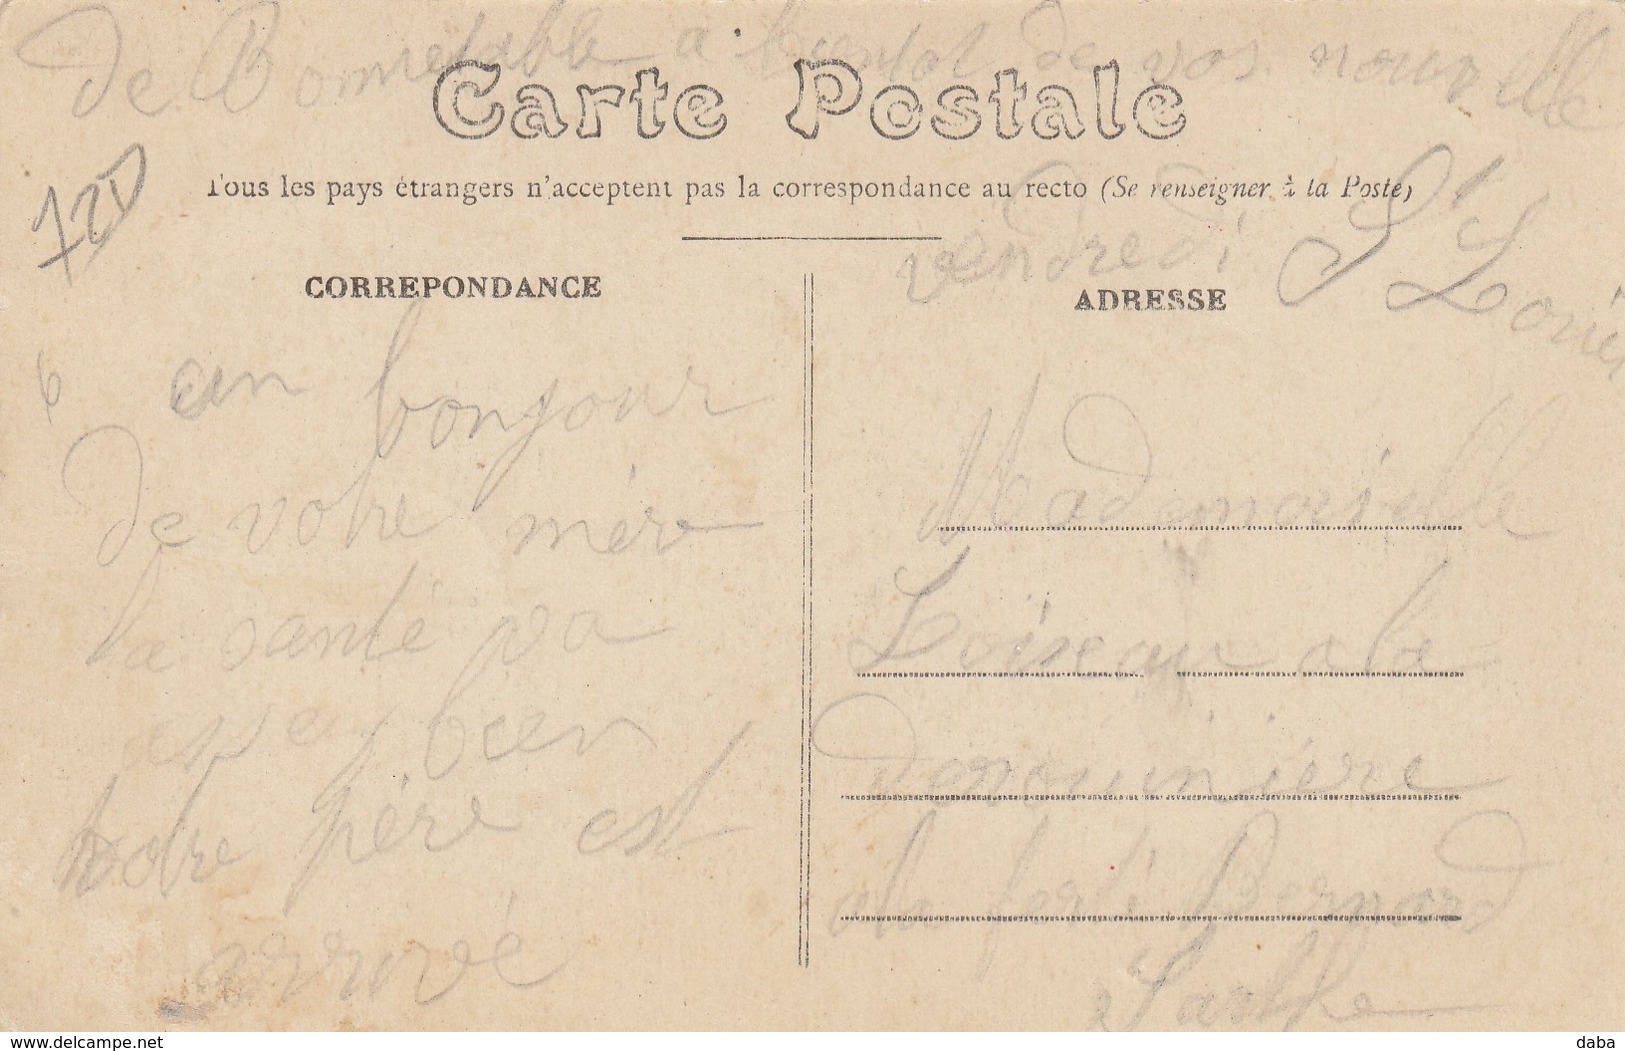 de Bonnetable a bientot de vos nouvelle
Carte Postale
Tous les pays étrangers n'acceptent pas la correspondance au recto (Se renseigner à la Poste)
72D
vendredi
CORREPONDANCE
ADRESSE
6
un bonjour
de votre mère
la santé va
bien
votre père est
arrivé
Mademoiselle
Loiseau a la
a la ferté Bernard
Sarthe
www.delcampe.net
daba